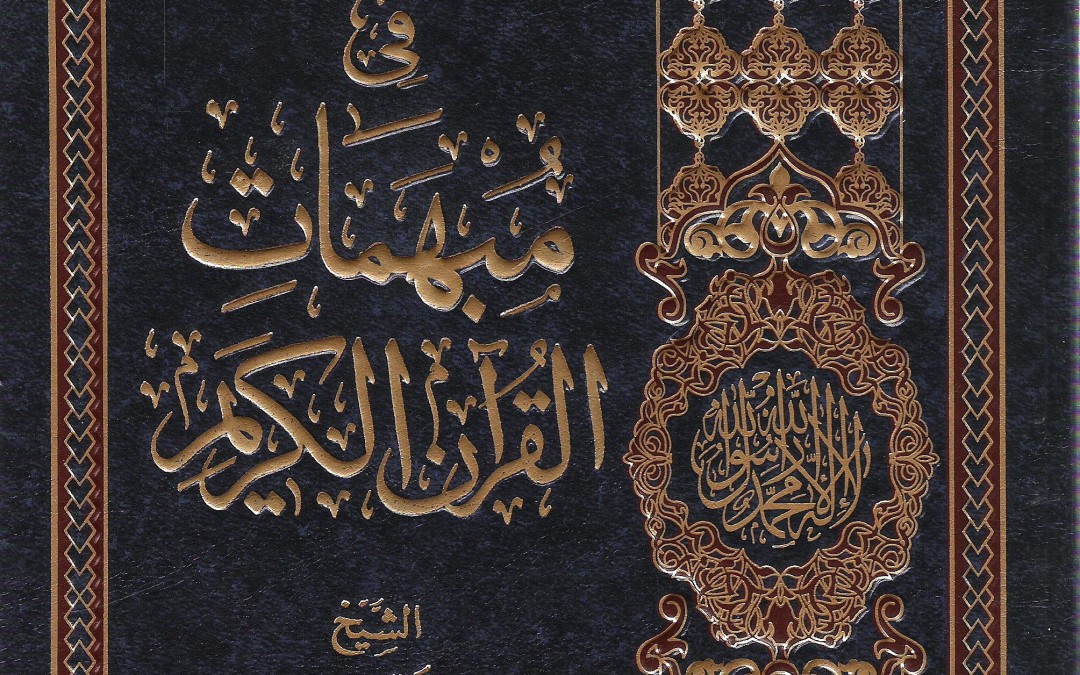 فِي
مُبْهَمَاتِ
القُرْآنِ الكَرِيمِ
لا إله إلا الله محمد رسول الله
الشَّيْخ